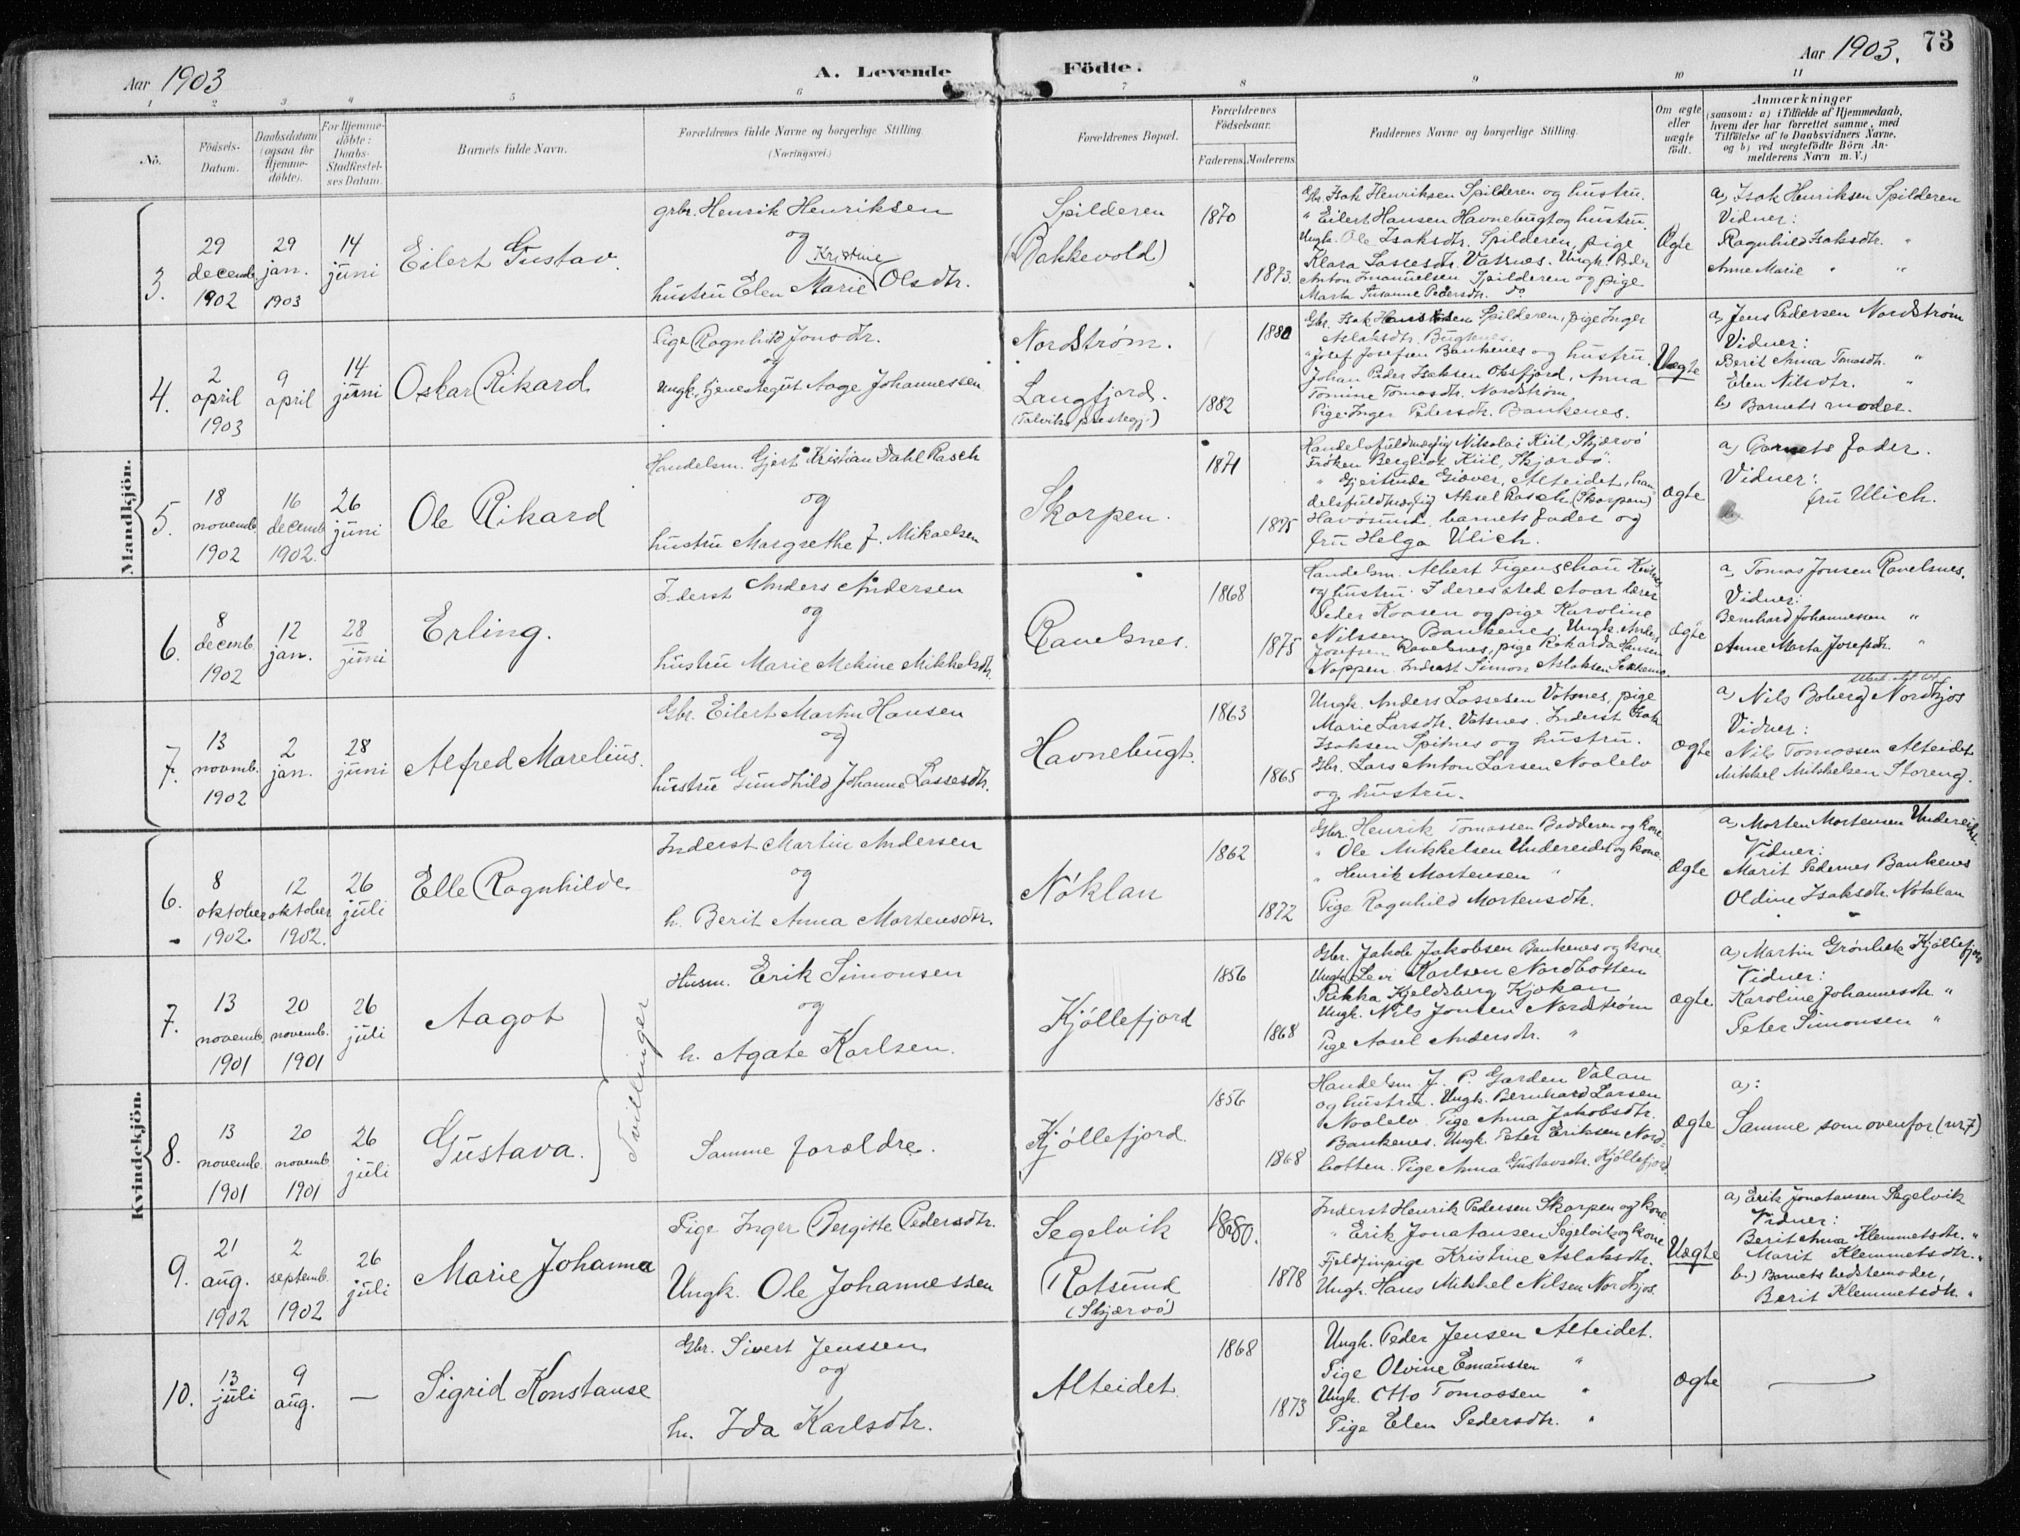 Aar 1903
A. Levende Födte.
Aar 1903.
73
1 2 3 4 5 6 7 8 9 10 11
No.
Födsels-Datum.
Daabsdatum (ogsaa for Hjemme-döbte).
For Hjemme-döbte: Daabs-Stadfæstel-ses Datum.
Barnets fulde Navn.
Forældrenes fulde Navne og borgerlige Stilling.
(Næringsvei.)
Forældrenes Bopæl.
Forældrenes Födselsaar.
Faderens. Moderens.
Faddernes Navne og borgerlige Stilling.
Om ægte eller uægte födt.
Anmærkninger
(saasom: a) i Tilfælde af Hjemmedaab, hvem der har forrettet samme, med Tilföielse af to Daabsvidners Navne, og b) ved uægtefödte Börn An-melderens Navn m. V.)
Mandkjön.
3.
29 decemb. 1902
29 jan. 1903
14 juni
Eilert Gustav.
grbr. Henrik Henriksen
og Kristine
hustru Elen Marie Olsdtr.
Spilderen
(Bakkevold)
1870
1873.
Gbr. Isak Henriksen Spilderen og hustru.
" Eilert Hansen Havnebugt og hustru.
Ungk. Ole Isaksdtr. Spilderen, pige
Klara Lassesdtr. Vatsnes. Ungk. Peder
Anton Imanuelsen Spilderen og pige
Marta Susanne Pedersdtr. do
Ægte
a) Isak Henriksen Spilderen
Vidner:
Ragnhild Isaksdtr. "
Anne Marie " "
4.
2 april 1903
9 april
14 juni
Oskar Rikard
Pige Ragnhild Jonsdtr.
og
Ungk. tjenestegut Aage Johannessen
Nordstrøm.
Langfjord.
(Talviks prestegj.)
1880
1882
Gbr. Isak Henriksen Spilderen, pige Inger
Aslaksdtr. Bugtenes.
" Josef Josefsen Bankenes og hustru.
Johan Peder Isaksen Oksfjord, Anna
Tomine Tomasdtr. Nordstrøm
Pige Inger Pedersdtr. Bankenes.
Uægte
a) Jens Pedersen Nordstrøm
Vidner:
Berit Anna Tomasdtr. "
Elen Nilsdtr. "
b) Barnets moder.
5.
18 novemb. 1902
16 decemb. 1902.
26 juni
Ole Rikard
Handelsm. Gjert Kristian Dahl Rasch
og
hustru Margrethe f. Mikaelsen
Skorpen.
1871
1875
Handelsfuldmægtig Nikolai Kiil, Skjærvö
Fröken Bergliot Kiil, Skjærvö
" Gjertrude Giæver, Alteidet, han-
delsfuldmægtig Aksel Rasch (Skorpen)
Havösund, barnets fader og
fru Helga Ulich.
ægte
a) Barnets fader.
Vidner:
fru Ulich.
6.
8 decemb. 1902
12 jan.
28 juni
Erling.
Inderst Anders Andersen
og
hustru Marie Mekine Mikkelsdtr.
Ravelsnes.
1868
1875
Handelsm. Albert Figenschau
og hustru. I deres sted svar lærer
Peder Kovsen og pige Karoline
Nilssen Bankenes, Ungk. Anders
Josefsen Ravelsnes, pige Rikarda Hansen
Noppen. Inderst Simon Aslaksen
ægte
a) Tomas Jonsen Ravelsnes.
Vidner:
Bernhard Johannessen "
Anne Marta Josefsdtr. "
7.
13 novmb. 1902
2 jan.
28 juni
Alfred Marelius.
Gbr. Eilert Martin Hansen
og
hustru Gundhild Johanne Lassesdtr.
Havnebugt.
1863
1865
Ungk. Anders Lassesen Vatsnes, pige
Marie Larsdtr. Vatsnes. Inderst Isak
Isaksen Spitnes og hustru.
Gbr. Lars Anton Larsen Noalelv
og hustru.
ægte
a) Nils Boberg Nordkjos
Vidner:
Nils Tomassen Alteidet
Mikkel Mikkelsen Storeng.
Kvindekjön.
6.
8 oktober 1902.
12 oktober 1902.
26 juli
Elle Ragnhilde
Inderst Martin Andersen
og
h. Berit Anna Mortensdtr.
Nöklan
1862
1872
Gbr. Henrik Tomassen Badderen og kone
" Ole Mikkelsen Undereidet og kone.
" Henrik Mortensen "
Pige Ragnhild Mortensdtr.
ægte
a) Morten Mortensen Undereidet.
Vidner:
Marit Pedernes Bankenes
Oldine Isaksdtr. Nöklan
7.
13 novemb. 1901
20 novemb. 1901
26 juli
Aagot
Tvillinger
Husm. Erik Simonsen
og
h. Agate Karlsen.
Kjöllefjord
1856
1868
Gbr. Jakob Jakobsen Bankenes og kone
Ungk. Levi Karlsen Nordbotten
Rikka Kjeldsberg Kjökan
Ungk. Nils Jonsen Nordström
Pige Aasel Andersdtr. "
ægte
a) Martin Grönbek Kjöllefjord
Vidner:
Karoline Johannesdtr. "
Peter Simonsen "
8.
13 novemb. 1901
20 novemb 1901
26 juli
Gustava.
Samme forældre.
Kjöllefjord.
1856
1868
Handelsm. J. P. Garden Valan
og hustru. Ungk. Bernhard Larsen
Noalelv. Pige Anna Jakobsdtr.
Bankenes. Ungk. Peter Eriksen Nord-
botten. Pige Anna Gustavsdtr. Kjöllefjord
ægte
a):
Samme som ovenfor (nr 7)
9.
21 aug. 1902
2 septemb. 1902
26 juli
Marie Johanna
Pige Inger Bergitte Pedersdtr.
Ungk. Ole Johannessen
Segelvik
Rotsund
(Skjærvö)
1880.
1878
Inderst Henrik Pedersen Skorpen og kone
" Erik Jonatansen Segelvik og kone
Fjeldfinpige Kristine Aslaksdtr.
Ungk. Hans Mikkel Nilsen Nordkjos.
Uægte
a) Erik Jonatansen Segelvik
Vidner:
Berit Anna Klemmetsdtr. "
Marit Klemmetsdtr. "
b.) Barnets bedstemoder,
Berit Klemmetsdtr. "
10.
13 juli
9 aug.
—
Sigrid Konstanse
Gbr. Sivert Jenssen
og
h. Ida Karlsdtr.
Alteidet.
1868
1873
Ungk. Peder Jensen Alteidet.
Pige Olvine Emaussen "
Ungk. Otto Tomassen "
Pige Elen Pedersdtr. "
ægte
—